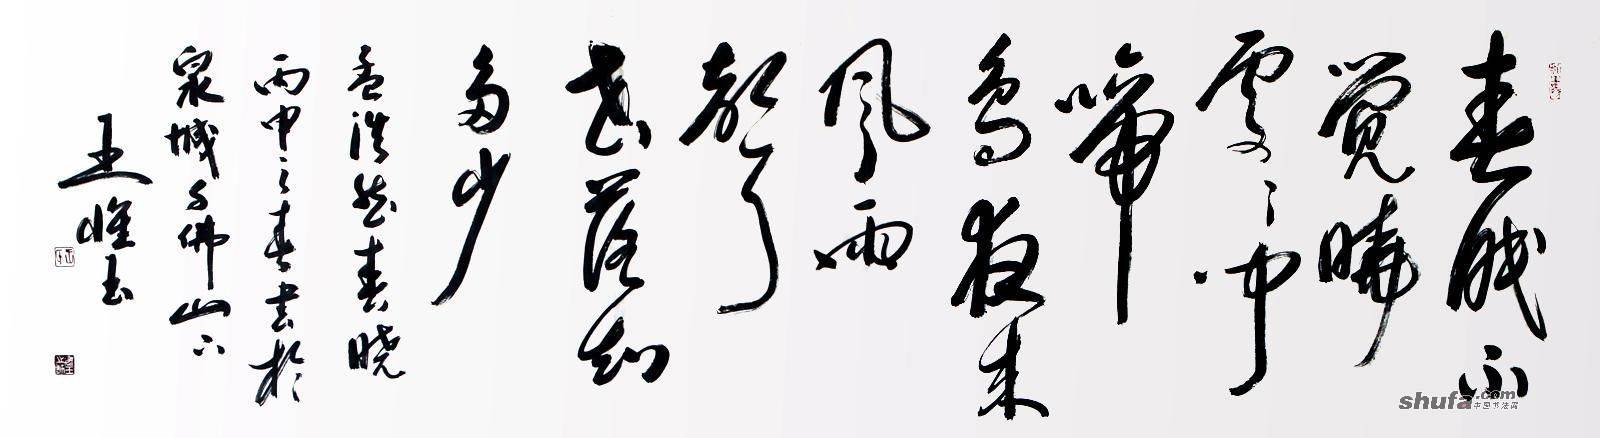 春眠不
觉晓
處々闻
啼
鸟夜来
风雨
聲
花落知
多少
孟浩然春晓
丙申之春书於
泉城千佛山下
王惟书
shufa.com
中国书法网